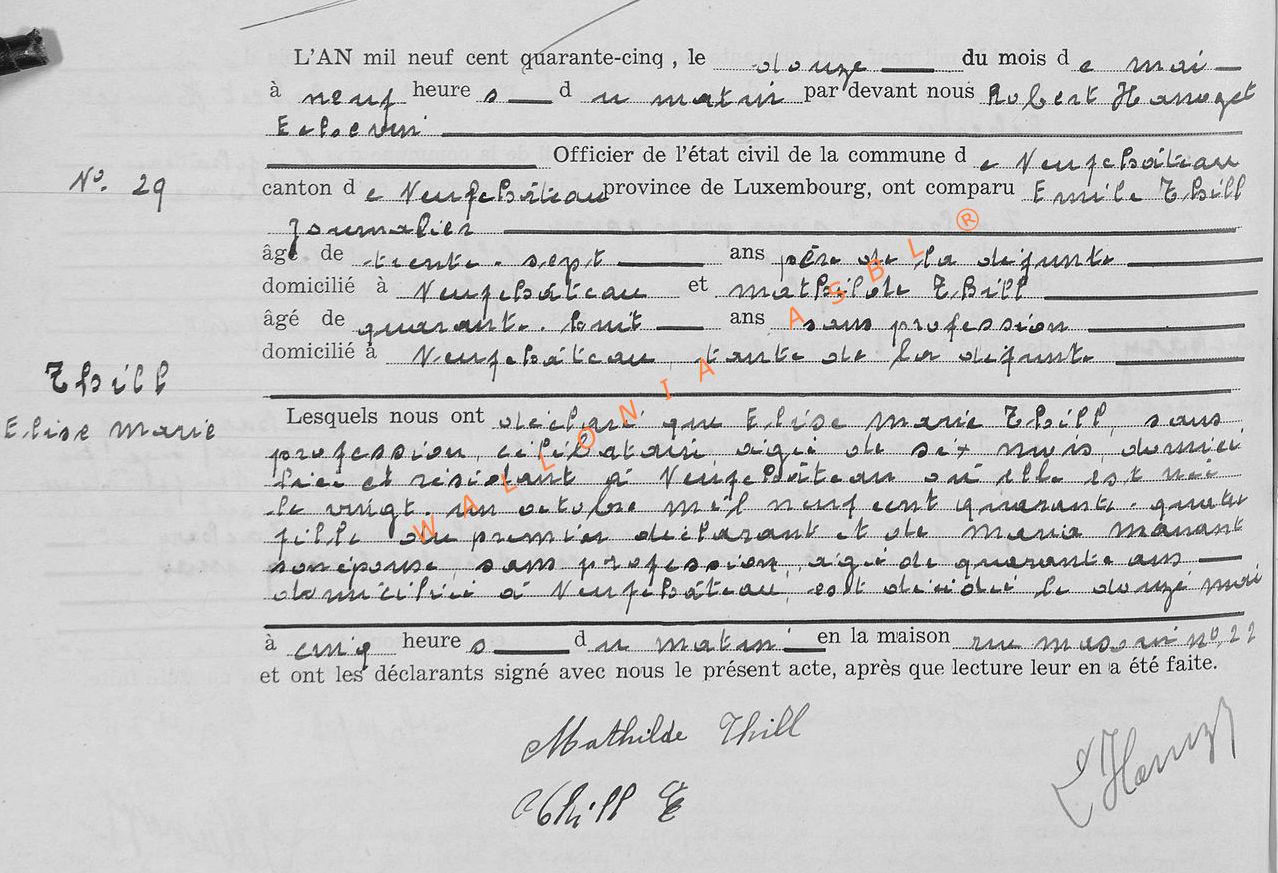 L'AN mil neuf cent quarante-cinq, le douze du mois de mai
à neuf heures du matin par devant nous Robert Hanozet
Echevin
Officier de l'état civil de la commune de Neufchâteau
N°. 29
canton de Neufchâteau province de Luxembourg, ont comparu Emile Thill
Journalier
âgé de trente-sept ans père de la défunte
domicilié à Neufchâteau et Mathilde Thill
âgé de quarante-huit ans sans profession
domicilié à Neufchâteau, tante de la défunte
Thill
Elise Marie
Lesquels nous ont déclaré que Elise Marie Thill, sans
profession, célibataire, agée de six mois, domici
liée et résidant à Neufchâteau où elle est née
le vingt-un octobre mil neuf cent quarante-quatre
fille du premier déclarant et de Maria Manant
son épouse, sans profession, agée de quarante ans
domiciliée à Neufchâteau, est décédée le douze mai
à cinq heures du matin en la maison rue n° 22
et ont les déclarants signé avec nous le présent acte, après que lecture leur en a été faite.
Mathilde Thill
Thill E
WALLONIA ASBL ®